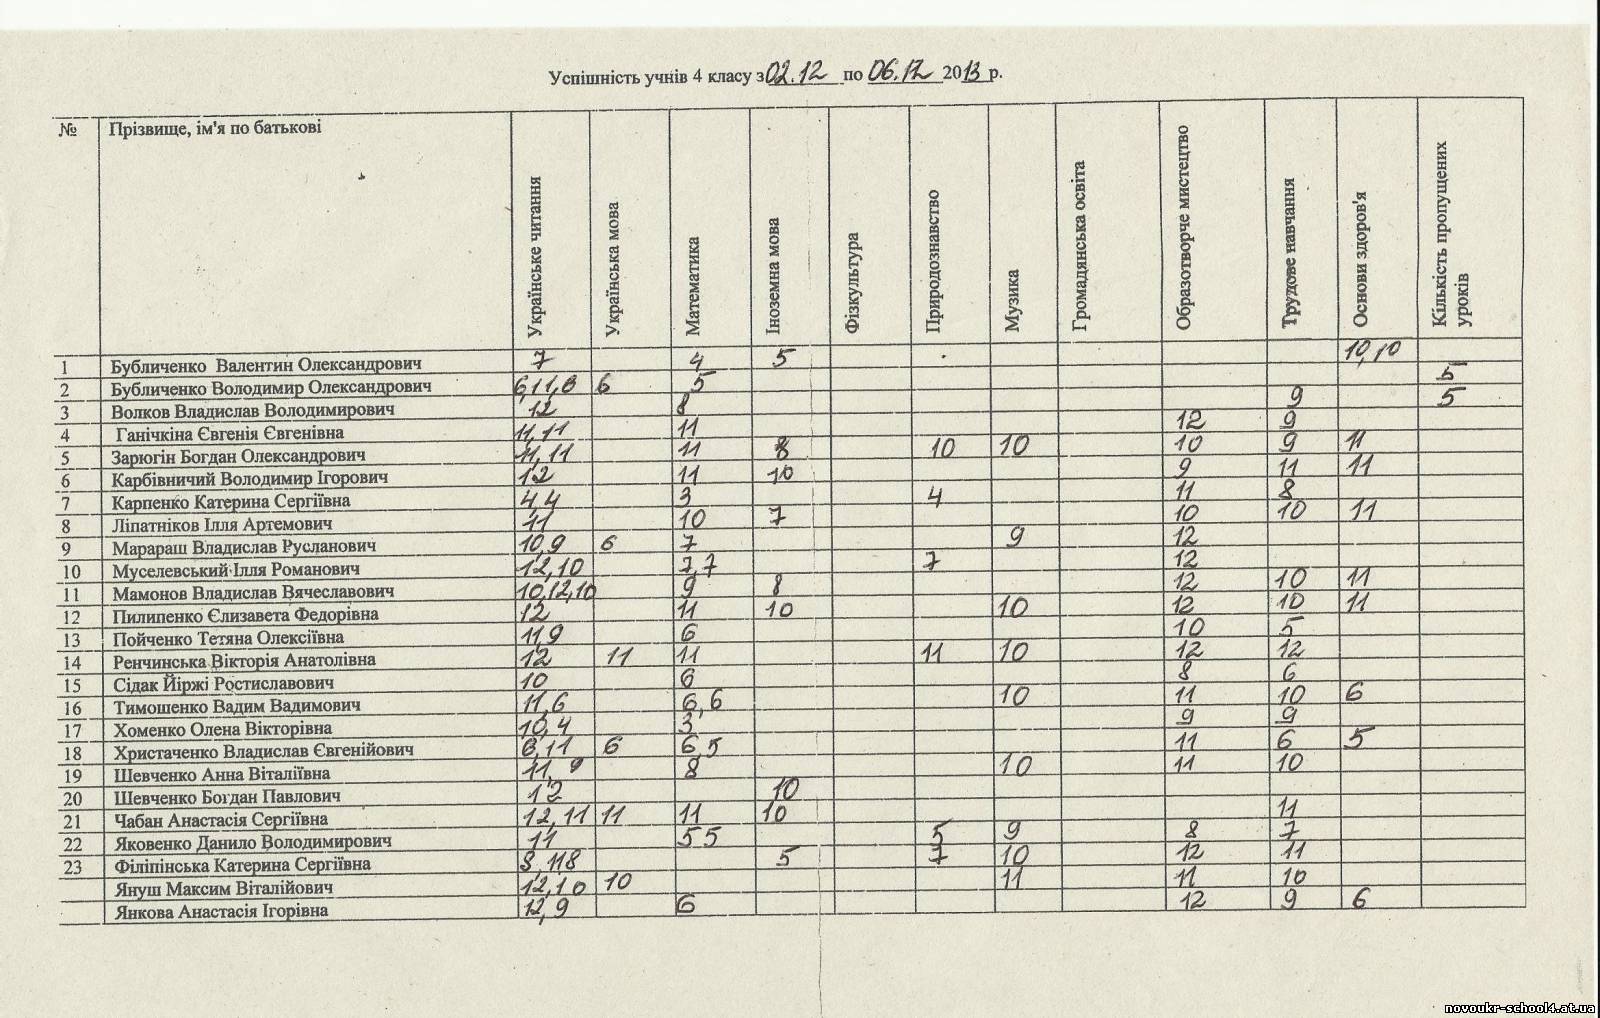 Успішність учнів 4 класу з 02.12 по 06.12 2013 р.
№ Прізвище, ім'я по батькові Українське читання Українська мова Математика Іноземна мова Фізкультура Природознавство Музика Громадянська освіта Образотворче мистецтво Трудове навчання Основи здоров'я Кількість пропущених уроків
1 Бубличенко Валентин Олександрович 7 4 5 10,10
2 Бубличенко Володимир Олександрович 6,11,8 6 5 5
3 Волков Владислав Володимирович 12 8 9 5
4 Ганічкіна Євгенія Євгенівна 11,11 11 12 9
5 Зарюгін Богдан Олександрович 11,11 11 8 10 10 10 9 11
6 Карбівничий Володимир Ігорович 12 11 10 9 11 11
7 Карпенко Катерина Сергіївна 4,4 3 4 11 8
8 Ліпатніков Ілля Артемович 11 10 7 10 10 11
9 Марараш Владислав Русланович 10,9 6 7 9 12
10 Муселевський Ілля Романович 12,10 7,7 7 12
11 Мамонов Владислав Вячеславович 10,12,10 9 8 12 10 11
12 Пилипенко Єлизавета Федорівна 12 11 10 10 12 10 11
13 Пойченко Тетяна Олексіївна 11,9 6 10 5
14 Ренчинська Вікторія Анатолівна 12 11 11 11 10 12 12
15 Сідак Йіржі Ростиславович 10 6 8 6
16 Тимошенко Вадим Вадимович 11,6 6,6 10 11 10 6
17 Хоменко Олена Вікторівна 10,4 3 9 9
18 Христаченко Владислав Євгенійович 6,11 6 6,5 11 6 5
19 Шевченко Анна Віталіївна 11,9 8 10 11 10
20 Шевченко Богдан Павлович 12 10
21 Чабан Анастасія Сергіївна 12,11 11 11 10 11
22 Яковенко Данило Володимирович 11 5 5 5 9 8 7
23 Філіпінська Катерина Сергіївна 8,118 5 7 10 12 11
Януш Максим Віталійович 12,10 10 11 11 10
Янкова Анастасія Ігорівна 12,9 6 12 9 6
novoukr-school4.at.ua